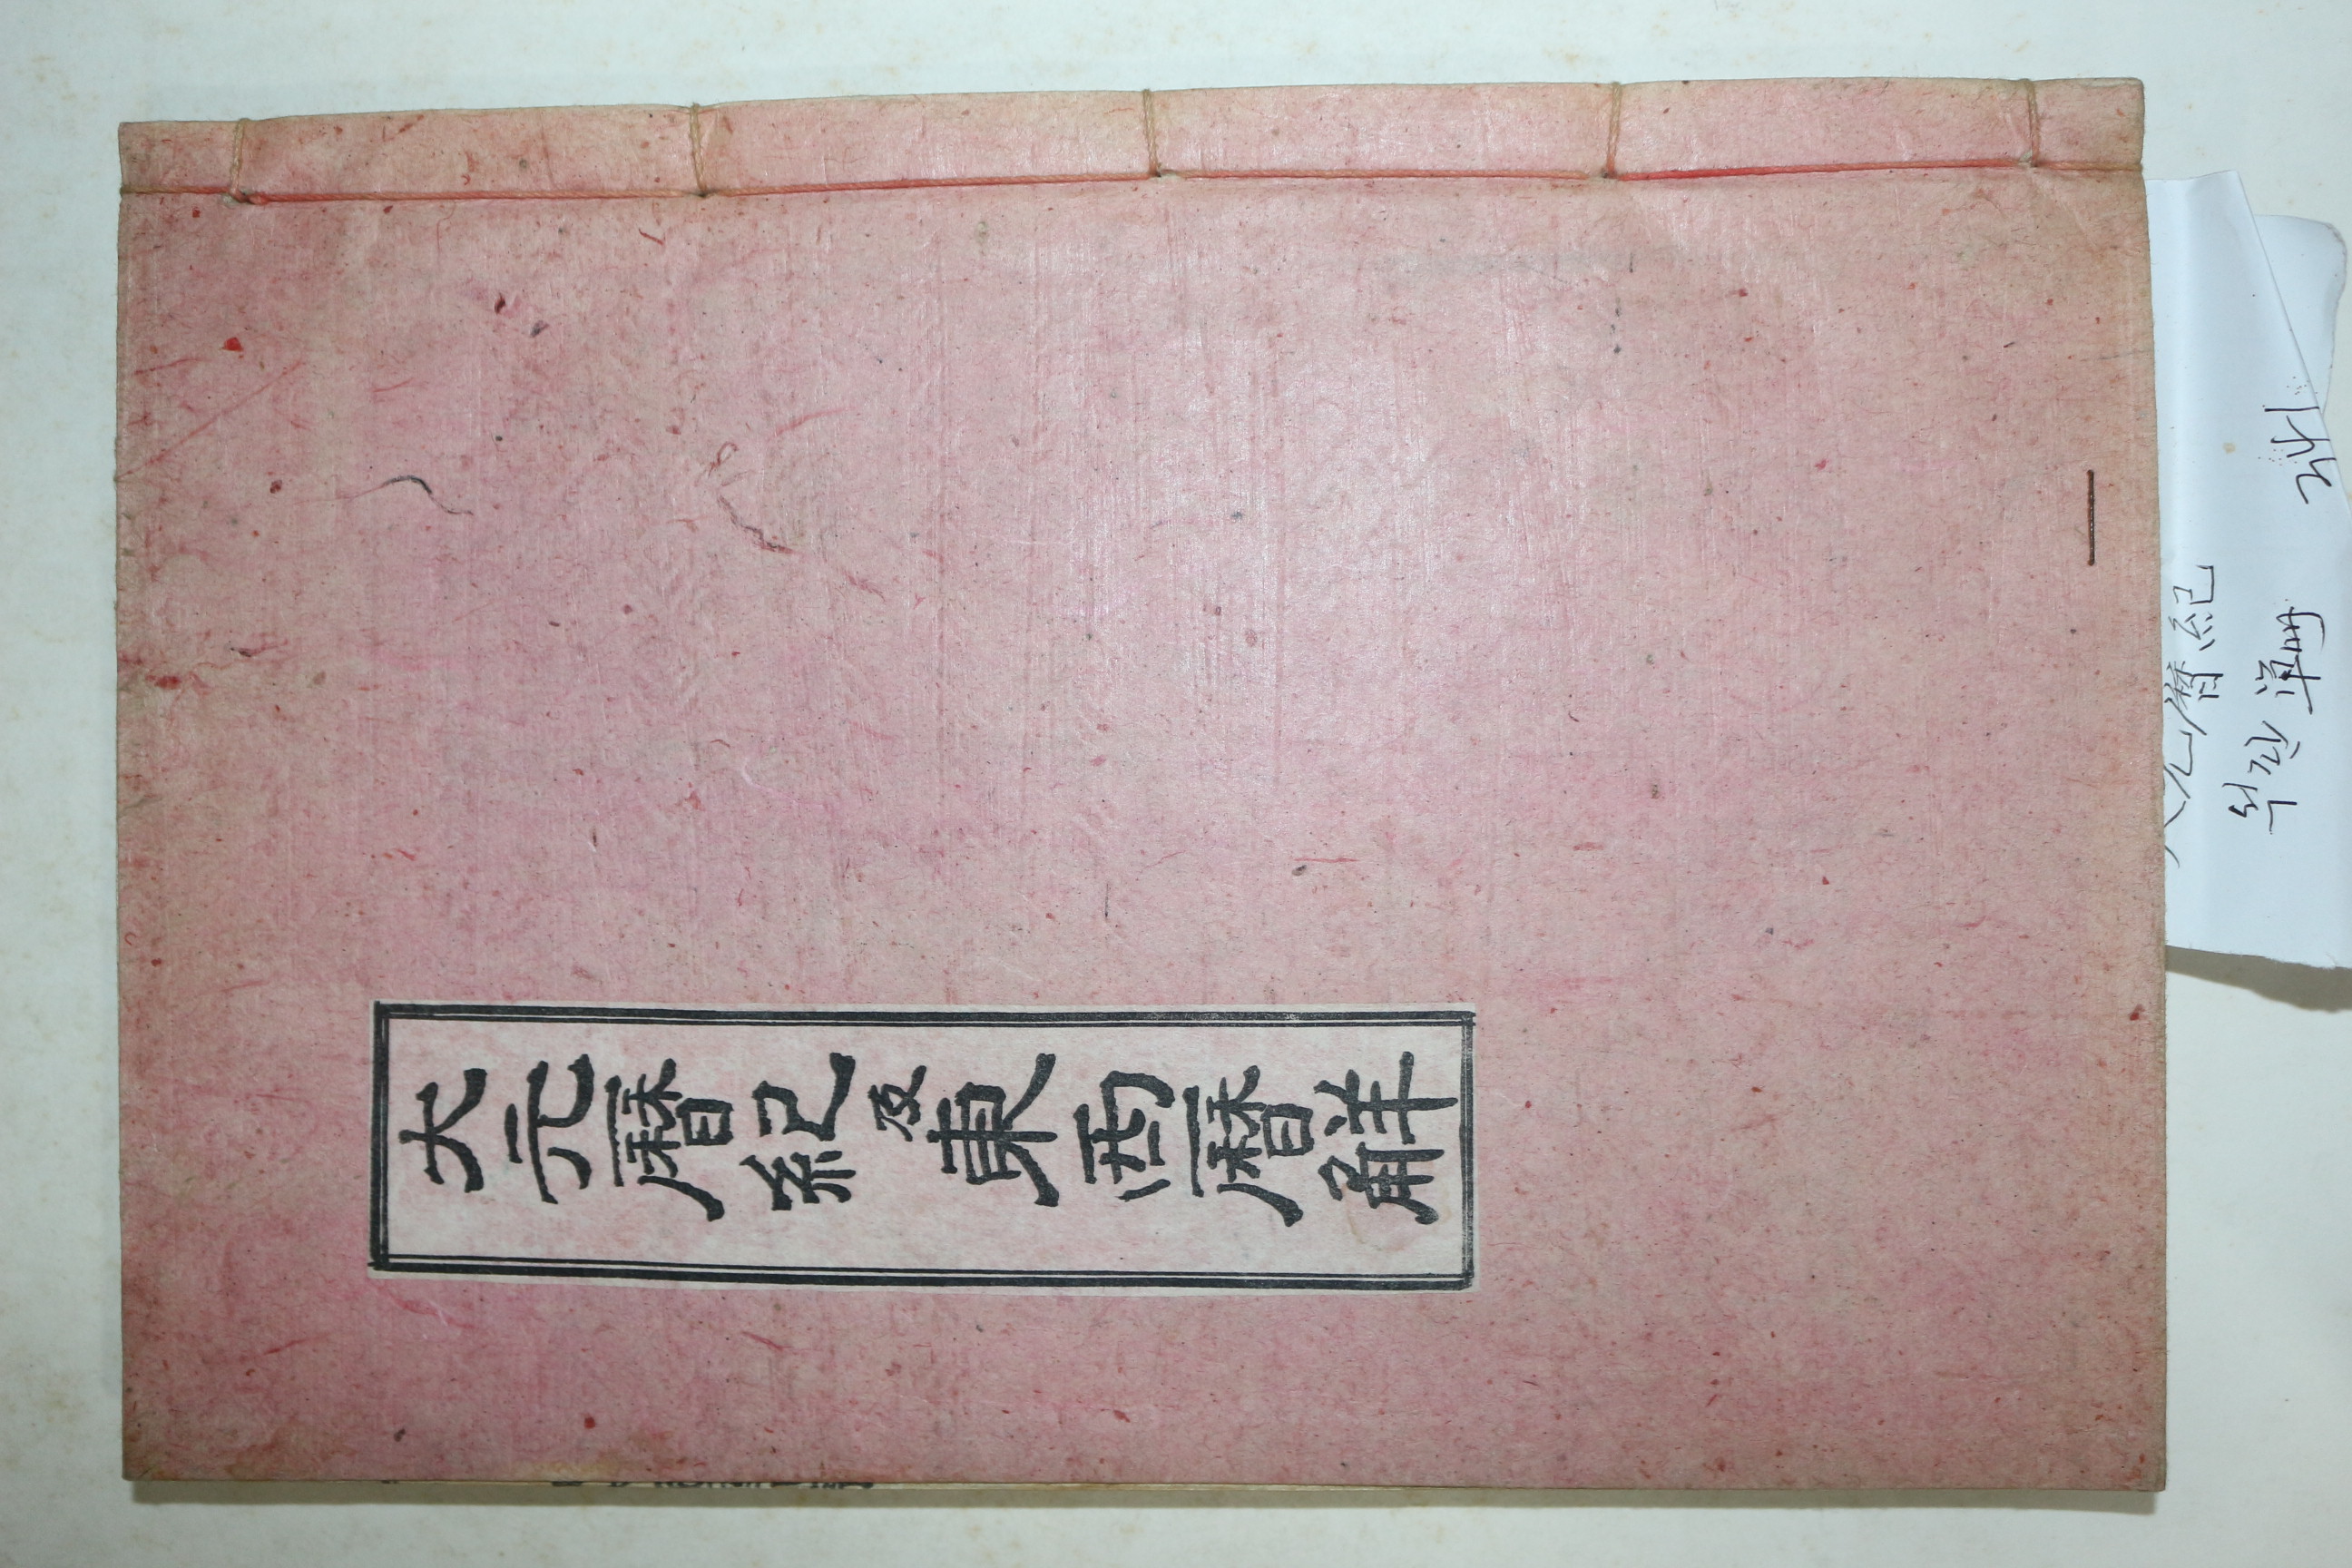 大元曆紀及東西曆解
大元曆紀
석판 單冊